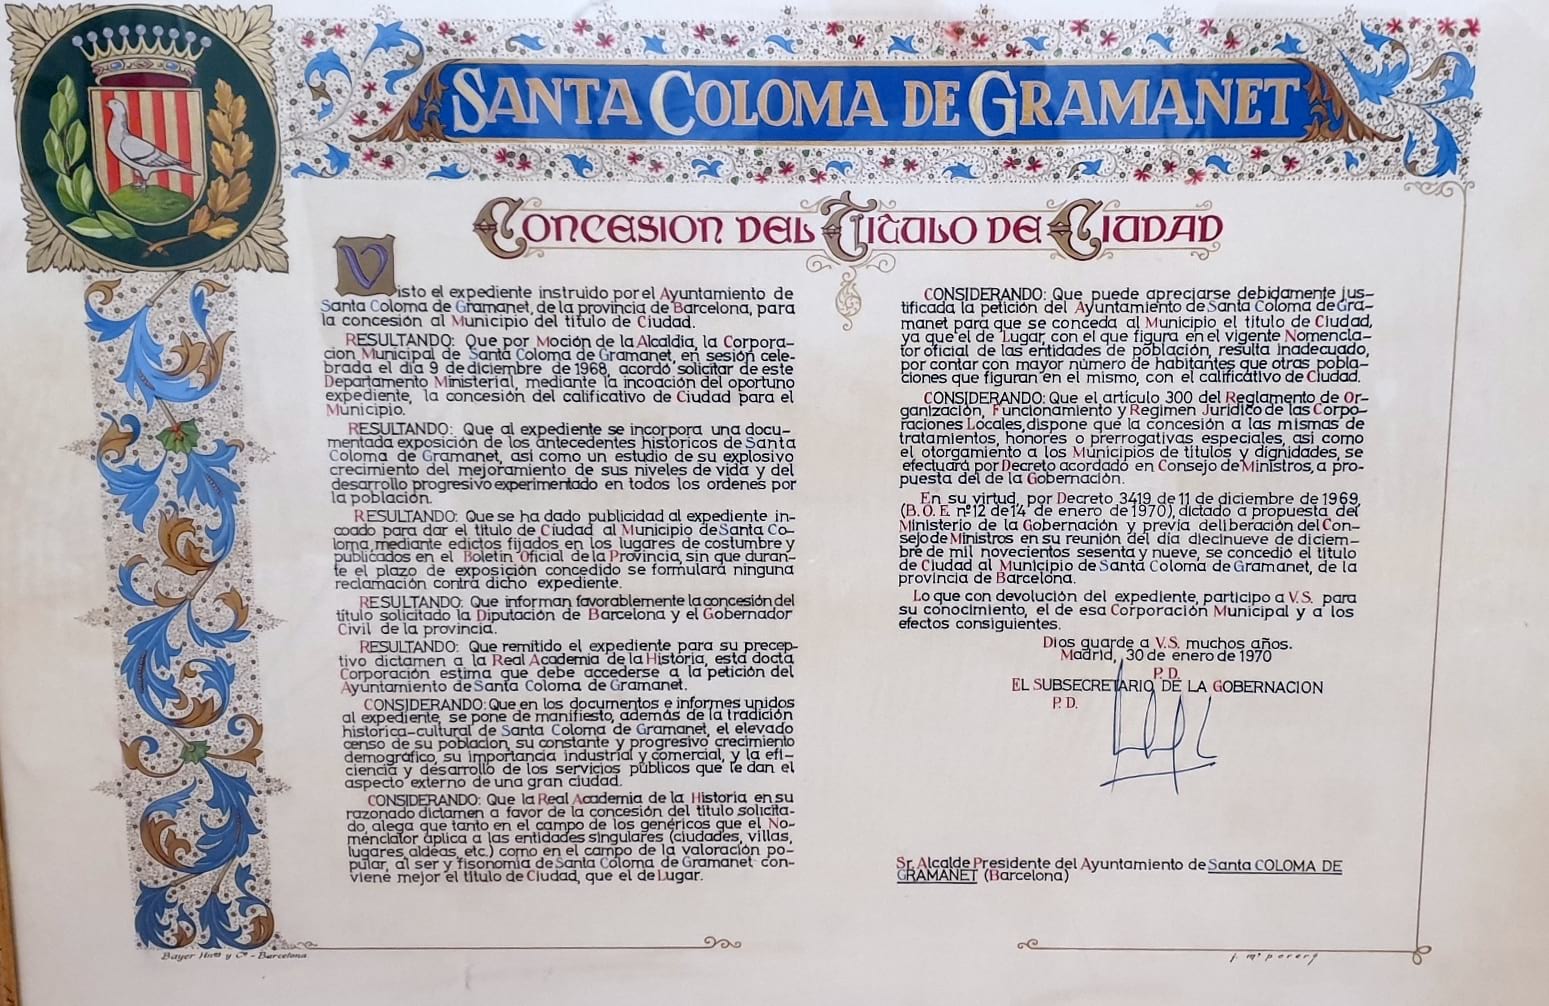 SANTA COLOMA DE GRAMANET
CONCESION DEL TITULO DE CIUDAD
Visto el expediente instruido por el Ayuntamiento de
Santa Coloma de Gramanet, de la provincia de Barcelona, para
la concesión al Municipio del título de Ciudad.
RESULTANDO: Que por Moción de la Alcaldía, la Corpora-
cion Municipal de Santa Coloma de Gramanet, en sesión cele-
brada el día 9 de diciembre de 1968, acordó solicitar de este
Departamento Ministerial, mediante la incoación del oportuno
expediente, la concesión del calificativo de Ciudad para el
Municipio.
RESULTANDO: Que al expediente se incorpora una docu-
mentada exposición de los antecedentes historicos de Santa
Coloma de Gramanet, así como un estudio de su explosivo
crecimiento del mejoramiento de sus niveles de vida y del
desarrollo progresivo experimentado en todos los ordenes por
la población.
RESULTANDO: Que se ha dado publicidad al expediente in-
coado para dar el título de Ciudad al Municipio de Santa Co-
loma, mediante edictos fijados en los lugares de costumbre y
publicados en el Boletín Oficial de la Provincia, sin que duran-
te el plazo de exposición concedido se formulará ninguna
reclamación contra dicho expediente.
RESULTANDO: Que informan favorablemente la concesión del
título solicitado la Diputación de Barcelona y el Gobernador
Civil de la provincia.
RESULTANDO: Que remitido el expediente para su precep-
tivo dictamen a la Real Academia de la História, esta docta
Corporación estima que debe accederse a la petición del
Ayuntamiento de Santa Coloma de Gramanet.
CONSIDERANDO: Que en los documentos e informes unidos
al expediente, se pone de manifiesto, además de la tradición
historica-cultural de Santa Coloma de Gramanet, el elevado
censo de su poblacion, su constante y progresivo crecimiento
demográfico, su importancia industrial y comercial, y la efi-
ciencia y desarrollo de los servicios públicos que le dan el
aspecto externo de una gran ciudad.
CONSIDERANDO: Que la Real Academia de la Historia en su
razonado dictamen a favor de la concesión del título solicita-
do, alega que tanto en el campo de los genéricos que el No-
menclator aplica a las entidades singulares (ciudades, villas,
lugares, aldeas, etc.) como en el campo de la valoración po-
pular, al ser y fisonomía de Santa Coloma de Gramanet con-
viene mejor el título de Ciudad, que el de Lugar.
CONSIDERANDO: Que puede apreciarse debidamente jus-
tificada la petición del Ayuntamiento de Santa Coloma de Gra-
manet para que se conceda al Municipio el título de Ciudad,
ya que el de Lugar, con el que figura en el vigente Nomencla-
tor oficial de las entidades de población, resulta inadecuado,
por contar con mayor número de habitantes que otras pobla-
ciones que figuran en el mismo, con el calificativo de Ciudad.
CONSIDERANDO: Que el artículo 300 del Reglamento de Or-
ganización, Funcionamiento y Regimen Jurídico de las Corpo-
raciones Locales, dispone que la concesión a las mismas de
tratamientos, honores o prerrogativas especiales, así como
el otorgamiento a los Municipios de títulos y dignidades, se
efectuará por Decreto acordado en Consejo de Ministros, a pro-
puesta del de la Gobernación.
En su virtud, por Decreto 3419 de 11 de diciembre de 1969,
(B.O.E. nº 12 de 14 de enero de 1970), dictado a propuesta del
Ministerio de la Gobernación y previa deliberación del Con-
sejo de Ministros en su reunión del día diecinueve de diciem-
bre de mil novecientos sesenta y nueve, se concedió el título
de Ciudad al Municipio de Santa Coloma de Gramanet, de la
provincia de Barcelona.
Lo que con devolución del expediente, participo a V.S. para
su conocimiento, el de esa Corporación Municipal y a los
efectos consiguientes.
Dios guarde a V.S. muchos años.
Madrid, 30 de enero de 1970
P.D.
EL SUBSECRETARIO DE LA GOBERNACION
P.D.
Sr. Alcalde Presidente del Ayuntamiento de Santa COLOMA DE
GRAMANET (Barcelona)
Bayer Hnos y Cª - Barcelona